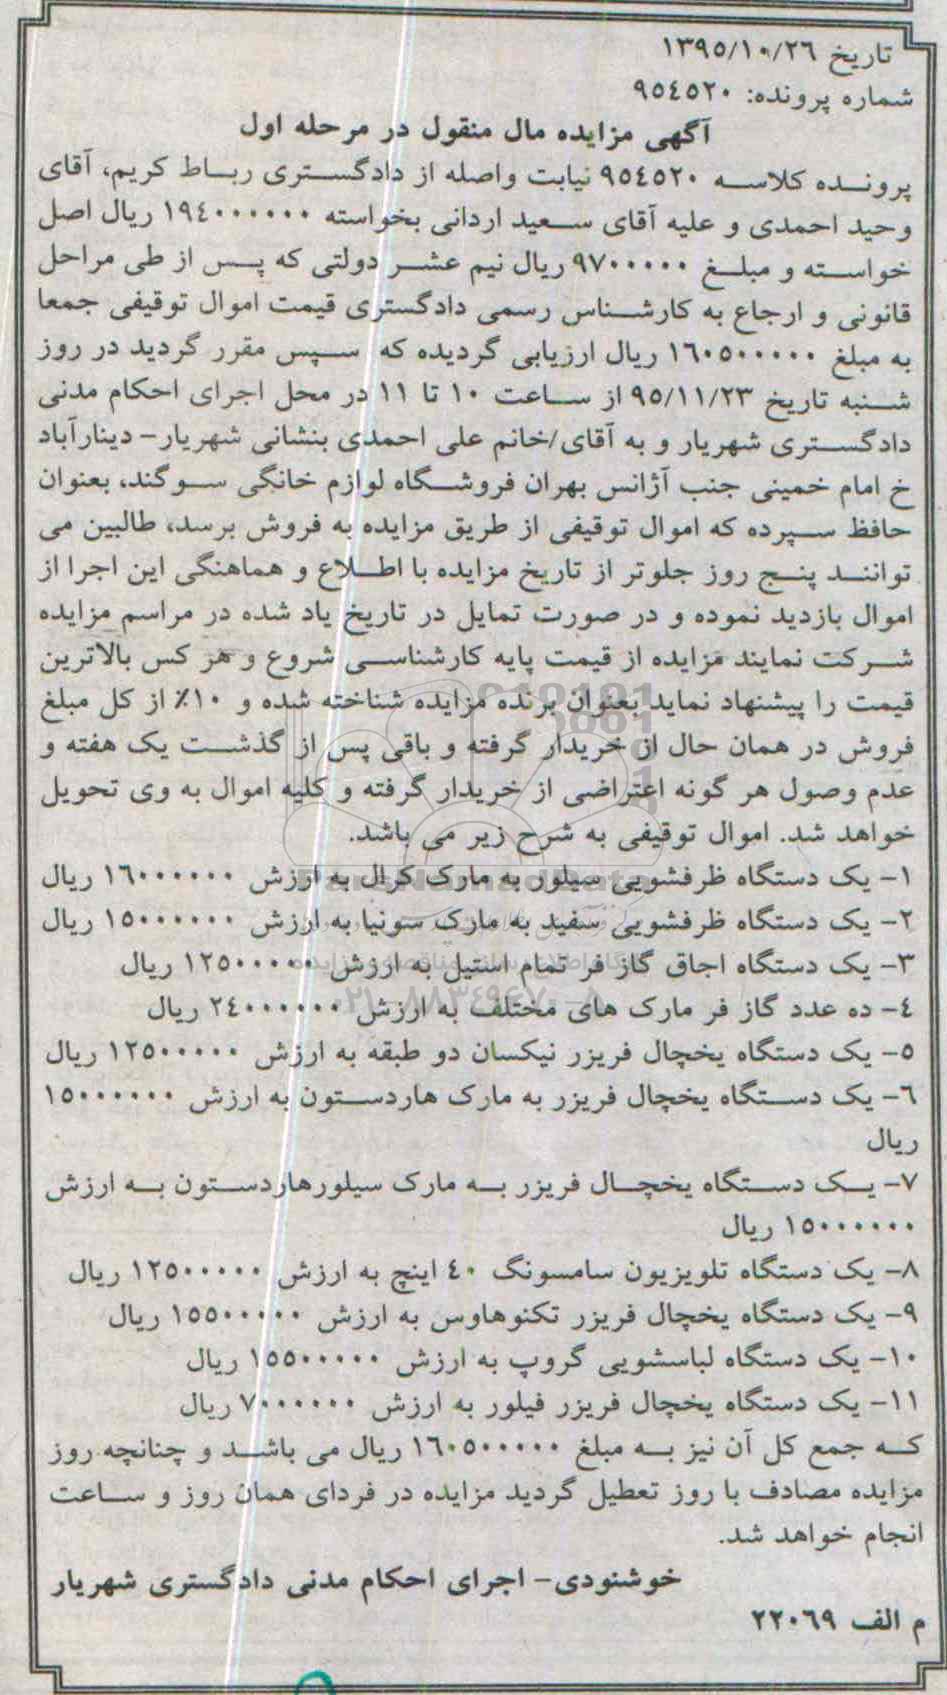 تاریخ ۱۳۹۵/۱۰/۲۶
شماره پرونده: ۹۵٤۵۲۰
آگهی مزایده مال منقول در مرحله اول
پرونده کلاسه ۹۵٤۵۲۰ نیابت واصله از دادگستری رباط کریم، آقای
وحید احمدی و علیه آقای سعید اردانی بخواسته ۱۹٤۰۰۰۰۰۰ ریال اصل
خواسته و مبلغ ۹۷۰۰۰۰۰ ریال نیم عشر دولتی که پس از طی مراحل
قانونی و ارجاع به کارشناس رسمی دادگستری قیمت اموال توقیفی جمعا
به مبلغ ۱٦۰۵۰۰۰۰۰ ریال ارزیابی گردیده که سپس مقرر گردید در روز
شنبه تاریخ ۹۵/۱۱/۲۳ از ساعت ۱۰ تا ۱۱ در محل اجرای احکام مدنی
دادگستری شهریار و به آقای/خانم علی احمدی بنشانی شهریار- دینارآباد
خ امام خمینی جنب آژانس بهران فروشگاه لوازم خانگی سوگند، بعنوان
حافظ سپرده که اموال توقیفی از طریق مزایده به فروش برسد، طالبین می
توانند پنج روز جلوتر از تاریخ مزایده با اطلاع و هماهنگی این اجرا از
اموال بازدید نموده و در صورت تمایل در تاریخ یاد شده در مراسم مزایده
شرکت نمایند مزایده از قیمت پایه کارشناسی شروع و هر کس بالاترین
قیمت را پیشنهاد نماید بعنوان برنده مزایده شناخته شده و ۱۰٪ از کل مبلغ
فروش در همان حال از خریدار گرفته و باقی پس از گذشت یک هفته و
عدم وصول هر گونه اعتراضی از خریدار گرفته و کلیه اموال به وی تحویل
خواهد شد. اموال توقیفی به شرح زیر می باشد.
۱- یک دستگاه ظرفشویی سیلور به مارک کرال به ارزش ۱٦۰۰۰۰۰۰ ریال
۲- یک دستگاه ظرفشویی سفید به مارک سونیا به ارزش ۱۵۰۰۰۰۰۰ ریال
۳- یک دستگاه اجاق گاز فر تمام استیل به ارزش ۱۲۵۰۰۰۰۰ ریال
٤- ده عدد گاز فر مارک های مختلف به ارزش ۲٤۰۰۰۰۰۰ ریال
۵- یک دستگاه یخچال فریزر نیکسان دو طبقه به ارزش ۱۲۵۰۰۰۰۰ ریال
٦- یک دستگاه یخچال فریزر به مارک هاردستون به ارزش ۱۵۰۰۰۰۰۰
ریال
۷- یک دستگاه یخچال فریزر به مارک سیلورهاردستون به ارزش
۱۵۰۰۰۰۰۰ ریال
۸- یک دستگاه تلویزیون سامسونگ ٤۰ اینچ به ارزش ۱۲۵۰۰۰۰۰ ریال
۹- یک دستگاه یخچال فریزر تکنوهاوس به ارزش ۱۵۵۰۰۰۰۰ ریال
۱۰- یک دستگاه لباسشویی گروپ به ارزش ۱۵۵۰۰۰۰۰ ریال
۱۱- یک دستگاه یخچال فریزر فیلور به ارزش ۷۰۰۰۰۰۰ ریال
که جمع کل آن نیز به مبلغ ۱٦۰۵۰۰۰۰۰ ریال می باشد و چنانچه روز
مزایده مصادف با روز تعطیل گردید مزایده در فردای همان روز و ساعت
انجام خواهد شد.
خوشنودی- اجرای احکام مدنی دادگستری شهریار
م الف ۲۲۰٦۹